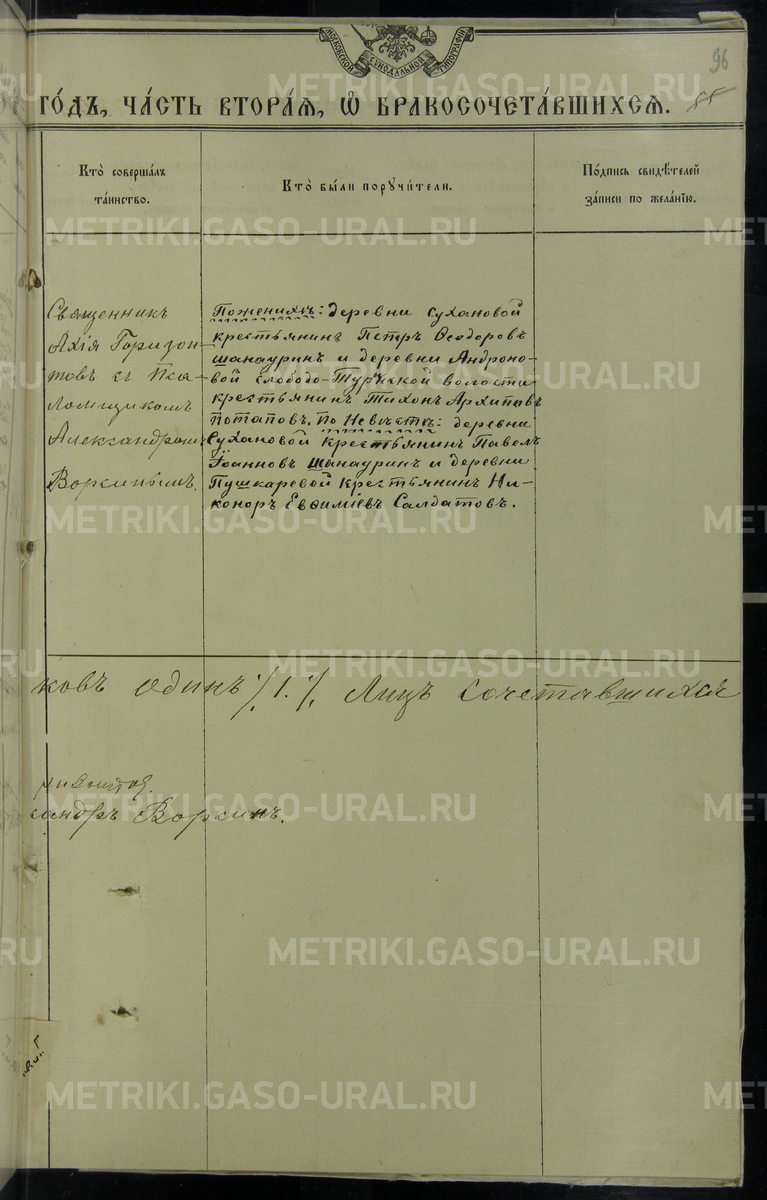 МОСКОВСКОЙ СѴНОДАЛЬНОЙ ТИПОГРАФІИ
96
ГО́ДЪ, ЧА́СТЬ ВТОРА́Я, Ѡ҆ БРАКОСОЧЕТА́ВШИХСЯ.
85
Кто̀ соверша́лъ
та́инство.
Кто̀ бы́ли поручи́тели.
По́дпись свидѣ́телей
за́писи по жела́нїю.
Священникъ
Ахія Горизон
товъ съ Пса-
ломщикомъ
Александромъ
Ворсинымъ.
По женихѣ: деревни Сухановой
крестьянинъ Петръ Ѳеодоровъ
Шанауринъ и деревни Андроно-
вой Слободо-Туринской волости
крестьянинъ Тихонъ Архиповъ
Потаповъ. По Невѣстѣ: деревни
Сухановой крестьянинъ Павелъ
Іоанновъ Шанауринъ и деревни
Пушкаревой крестьянинъ Ни-
коноръ Евѳиміевъ Салдатовъ.
ковъ одинъ /.1./. Лицъ сочетавшихся
сандръ Ворсинъ.
METRIKI.GASO-URAL.RU